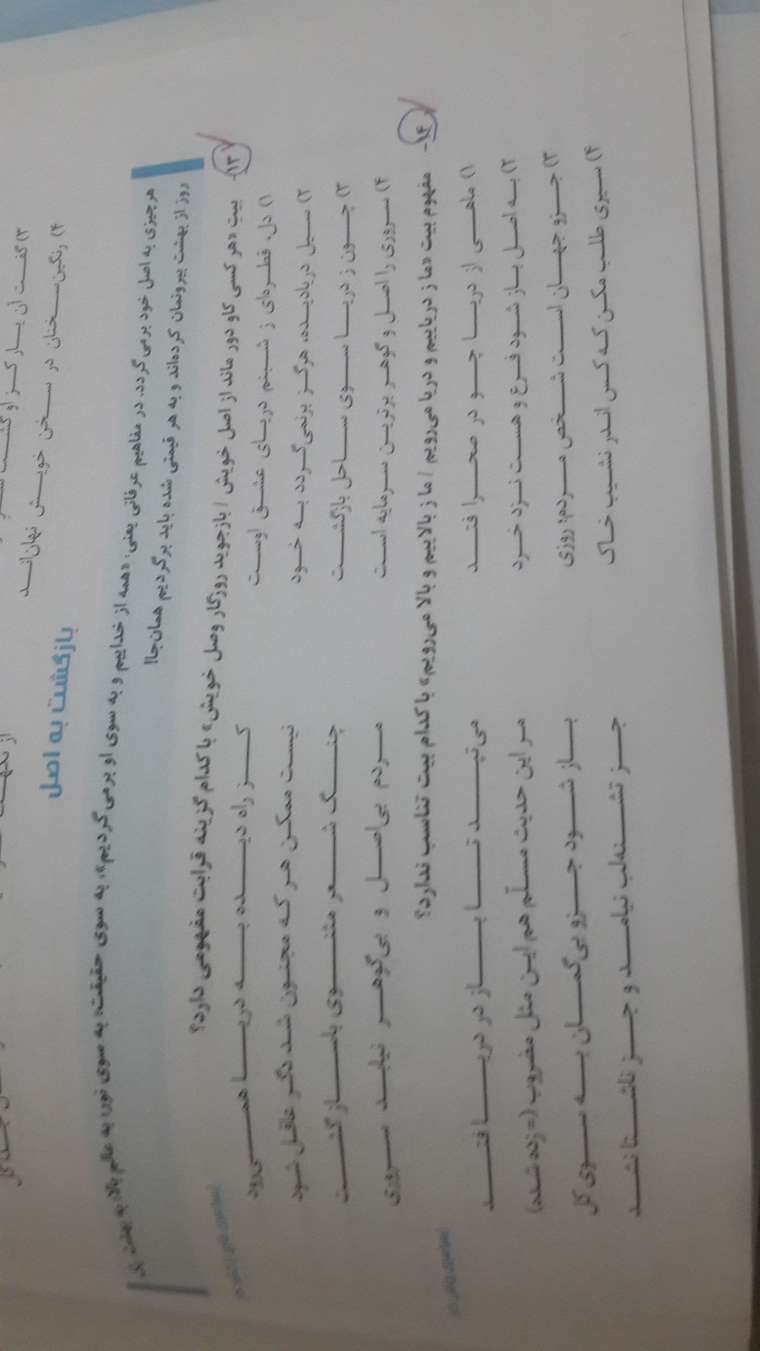 ۳) گفت آن یار کز او گشت
۴) رنگین‌سخنان در سخن خویش نهان‌اند
از نکهت
بازگشت به اصل
هرچیزی به اصل خود برمی‌گردد. در مفاهیم عرفانی یعنی: «همه از خداییم و به سوی او برمی‌گردیم»، به سوی حقیقت، به سوی نور، به عالم بالا، به بهشت
روز از بهشت بیرونمان کرده‌اند و به هر قیمتی شده باید برگردیم همان‌جا!
۱۳- بیت «هر کسی کاو دور ماند از اصل خویش / بازجوید روزگار وصل خویش» با کدام گزینه قرابت مفهومی دارد؟
۱) دل، قطره‌ای ز شبنم دریای عشق اوست کز راه دیده به دریا همی‌رود
۲) سیل دریادیده، هرگز برنمی‌گردد به خود نیست ممکن هر که مجنون شد دگر عاقل شود
۳) چون ز دریا سوی ساحل بازگشت چنگ شعر مثنوی با ساز گشت
۴) سروری را اصل و گوهر برترین سرمایه است مردم بی‌اصل و بی‌گوهر نیابد سروری
۱۴- مفهوم بیت «ما ز دریاییم و دریا می‌رویم / ما ز بالاییم و بالا می‌رویم» با کدام بیت تناسب ندارد؟
۱) ماهی از دریا چو در صحرا فتد می‌تپد تا باز در دریا فتد
۲) به اصل باز شود فرع و هست نزد خرد مر این حدیث مسلّم هم این مثل مضروب (=زده شده)
۳) جزو جهان است شخص مردم؛ روزی باز شود جزو بی‌گمان به سوی کل
۴) سیری طلب مکن که کس اندر نشیب خاک جز تشنه‌لب نیامد و جز ناشتا نشد